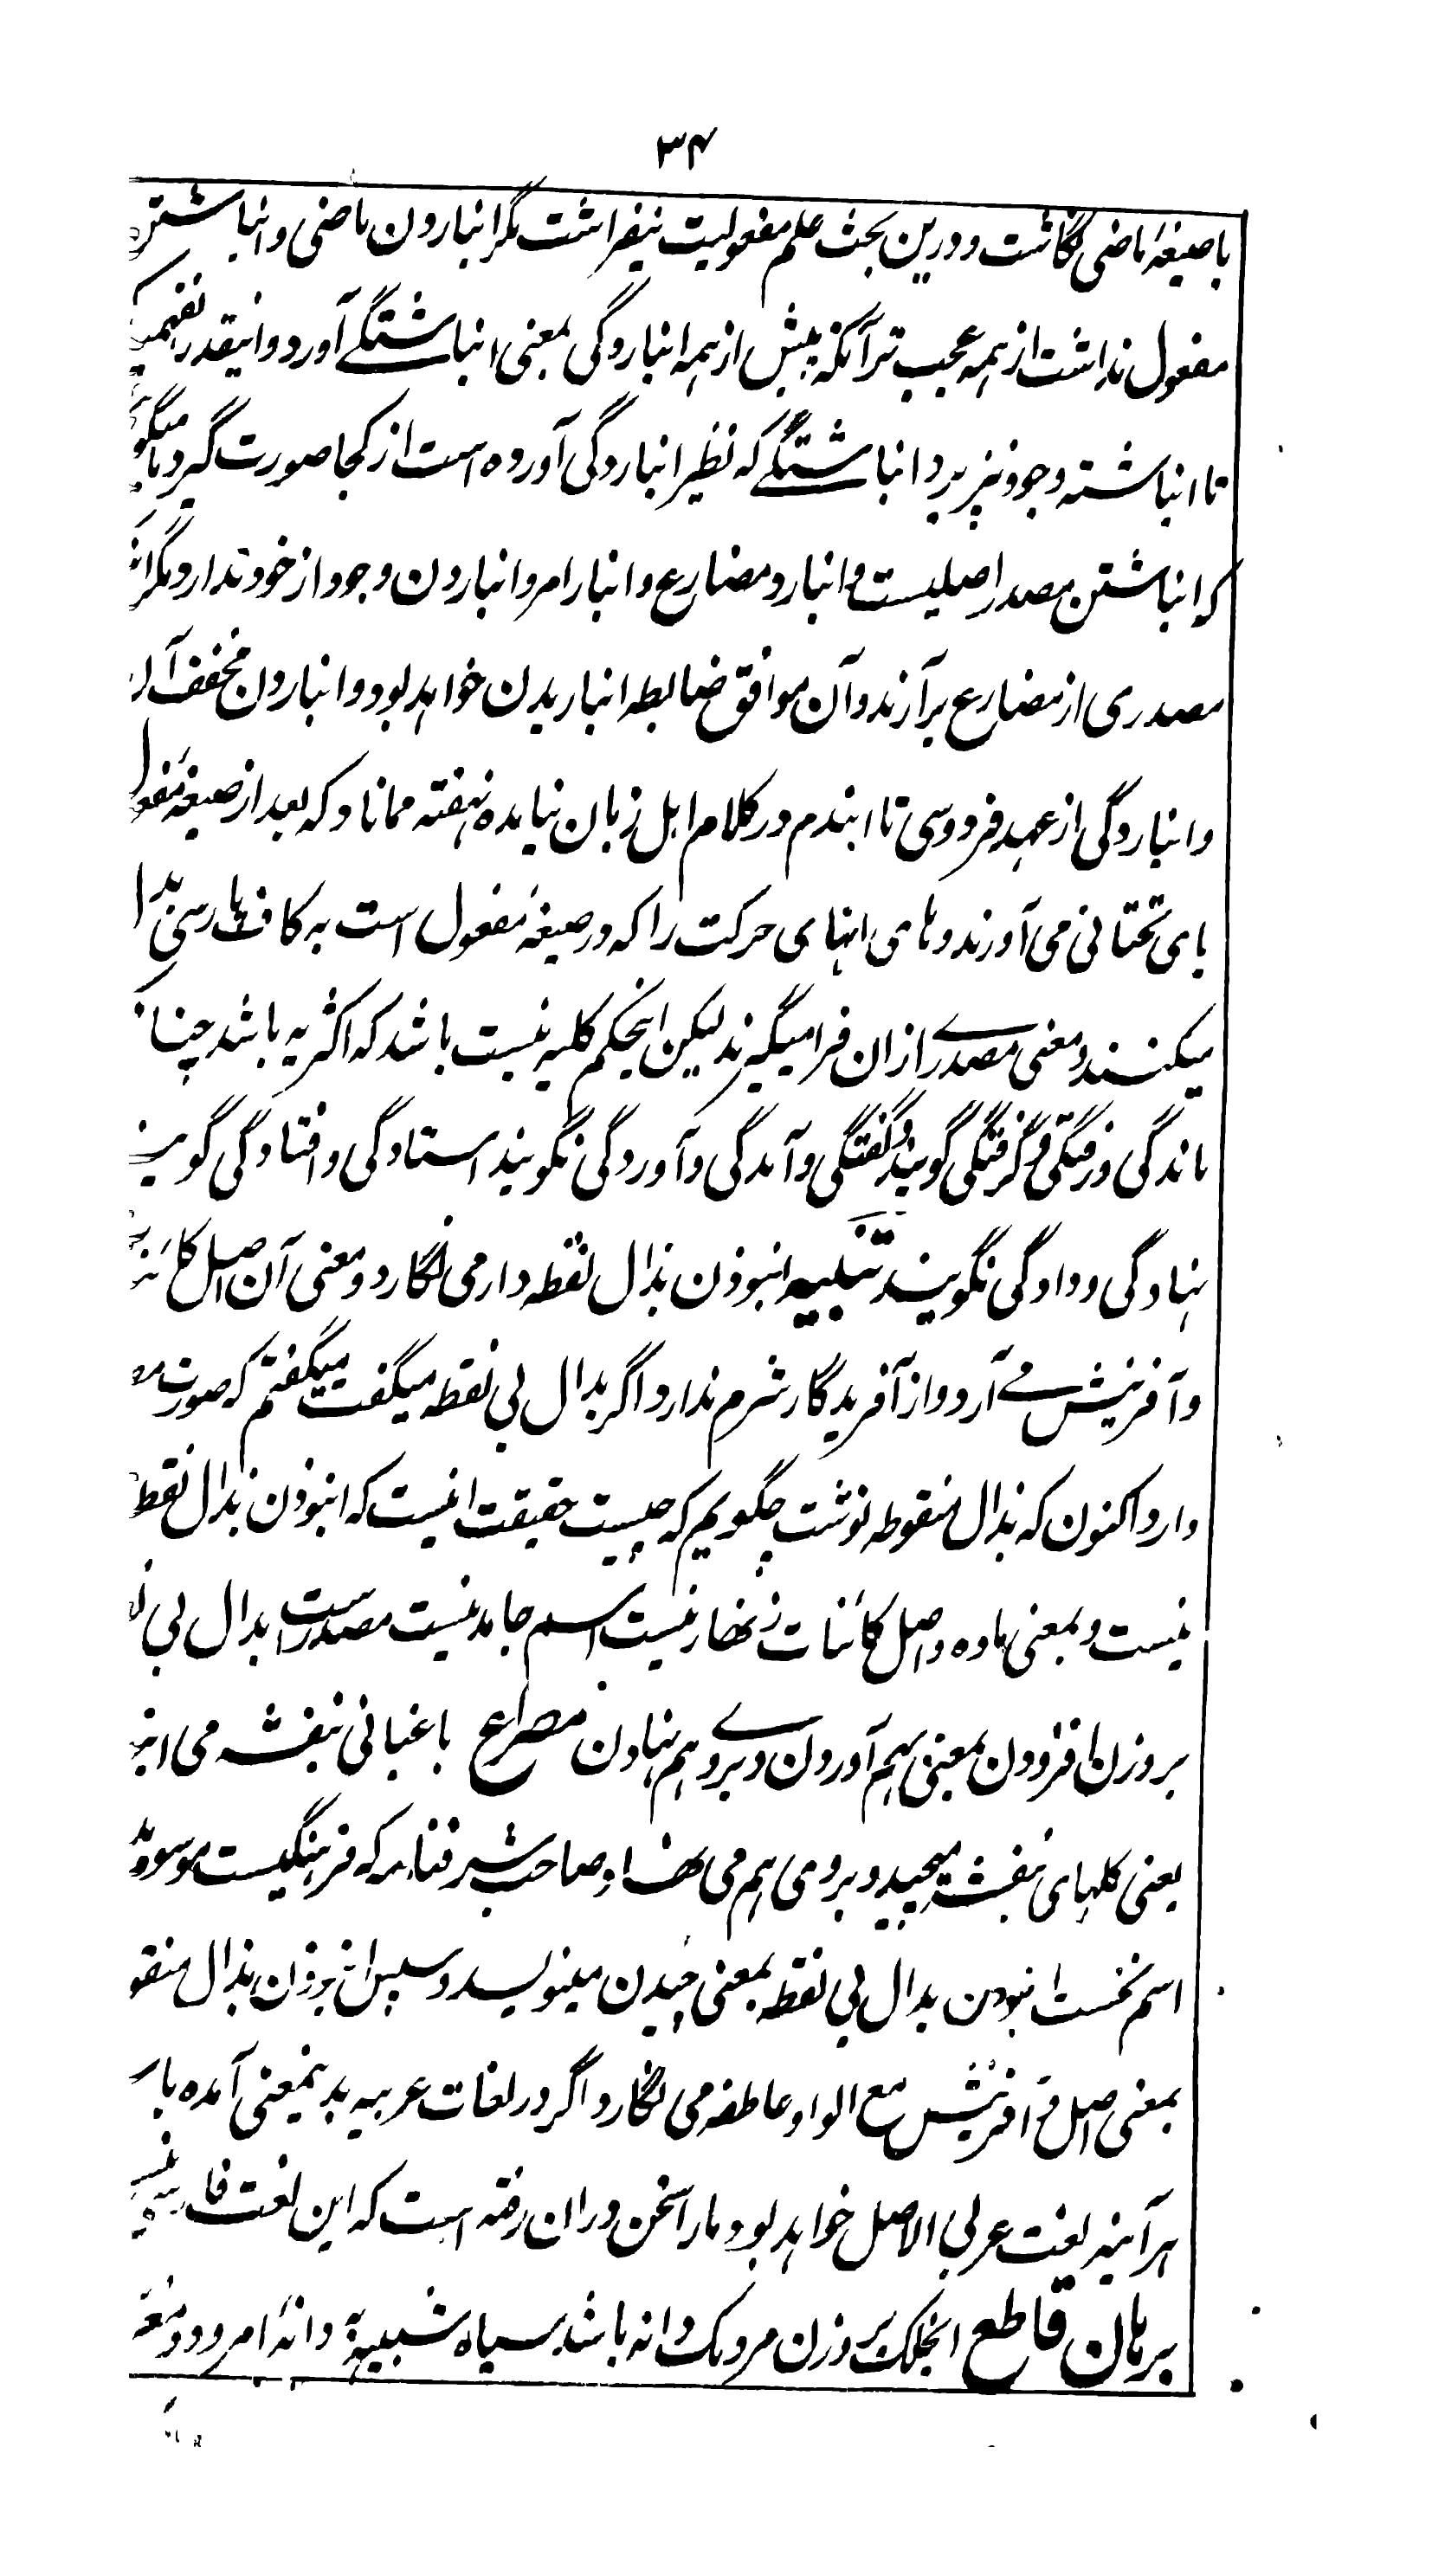 ۳۴
با صیغهٔ ماضی نگاشت و درین بحث علم مفعولیت نیفراشت مگر انباردن ماضی و انباشتن
مفعول نداشت از همه عجیب تر آنکه پیش از همه انباردگی بمعنی انباشتگے آورد و اینقدر نفهمید
تا انباشته وجود نپذیرد انباشتگے که نظیر انباردگی آورده است از کجا صورت گیرد ما میگو
که انباشتن مصدر اصلیست و انبارد مضارع و انبار امر و انباردن وجود از خود ندارد مگر
مصدری از مضارع برآرند و آن موافق ضابطه انباریدن خواهد بود و انباردن مخفف آن
و انباردگی از عهد فردوسی تا ایندم در کلام اہل زبان نیامده نہفته مماناد که بعد از صیغهٔ مفعول
یای تحتانی می آورند و ہای انہای حرکت را که در صیغهٔ مفعول است به کاف پارسی بدل
میکنند و معنی مصدرے ازان فرامیگیرند لیکن اینحکم کلیه نیست باشد که اکثریه باشد چنان
ماندگی و رفتگی و گرفتگی گویند و گفتگی و آمدگی و آوردگی نگویند استادگی و افتادگی گویند
نہادگی و دادگی نگویند تنبیه انبوذن بذال نقطه دار می نگارد و معنی آن اصل کائنات
و آفرینش مے آرد و از آفریدگار شرم ندارد اگر بدال بی نقطه میگفت میگفتم که صورت
دارد اکنون که بذال منقوطه نوشت چگویم که چیست حقیقت اینست که انبوذن بذال نقطه
نیست و بمعنی ماده و اصل کائنات زنہار نیست اسم جامد نیست مصدرست بدال بی
بر وزن افزودن بمعنی بہم آوردن و بر روے ہم نہادن مصراع باغبانی بنفشه می
یعنی گلہای بنفشه میچید و بروی ہم می نہاد و صاحب شرفنامه که فرہنگیست موسوم
اسم نخست انبودن بدال بی نقطه بمعنی چیدن مینویسد و سپس انبوذن بذال منقو
بمعنی اصل و آفرینش مع الواو عاطفه می نگارد اگر در لغات عربیه بدینمعنی آمده با
ہر آئینه لغت عربی الاصل خواہد بود ما را سخن دران رفته است که این لغت فا
برہان قاطع انجلک بر وزن مردمک دانه باشد سیاه شبیه به دانهٔ امرود و مغز